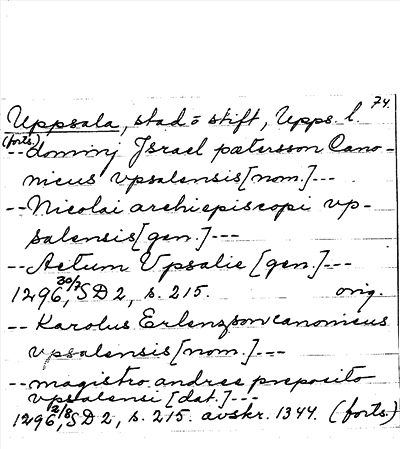 74.
Uppsala, stad o stift, Upps. l.
(forts.)
-- dominj Jsrael pætersson Cano-
nicus vpsalensis [nom.] ---
-- Nicolai archiepiscopi vp-
salensis [gen.] ---
-- Actum Upsalie [gen.] ---
1296 30/7, SD 2, s. 215. orig.
-- Karolus Erlenzson canonicus
vpsalensis [nom.] ---
-- magistro andree preposito
vpsalensi [dat.] ---
1296 2/8, SD 2, s. 215. avskr. 1344. (forts.)